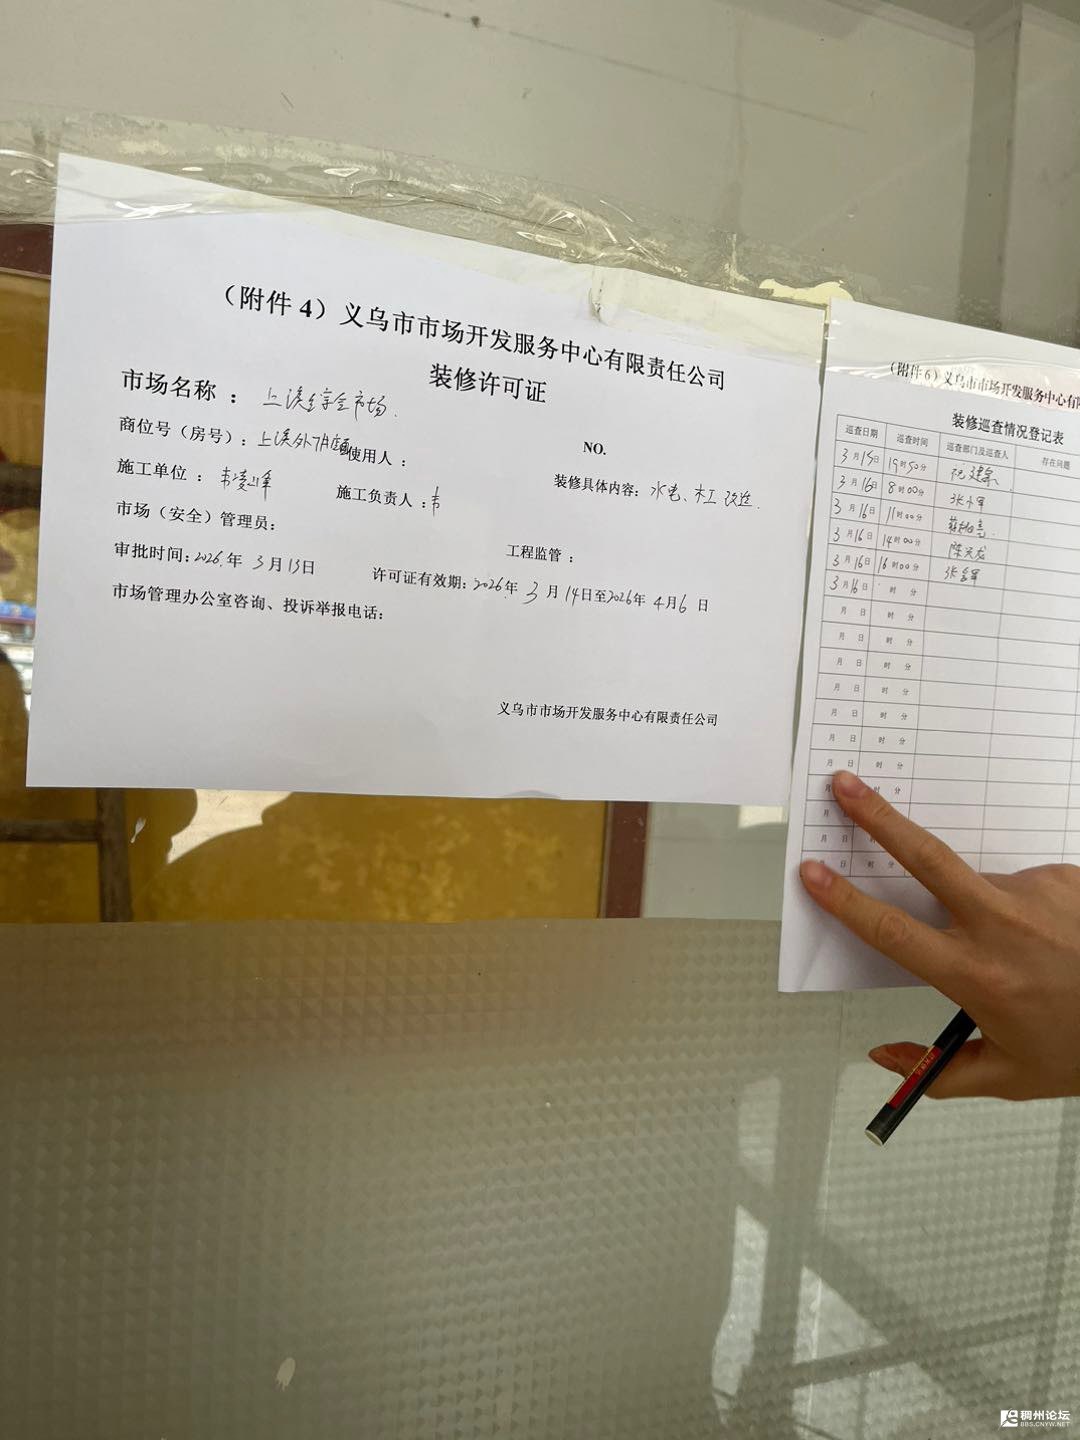 （附件 4）义乌市市场开发服务中心有限责任公司
装修许可证
市场名称 ： 上溪综合市场.
NO.
商位号（房号）：上溪外7 使用人 ：
施工单位 ： 韦凌峰 施工负责人 ：韦 装修具体内容： 水电、木工 改造.
市场（安全）管理员:
工程监管 ：
审批时间: 2026. 年 3 月 13日 许可证有效期: 2026. 年 3 月 14日至2026年 4月6 日
市场管理办公室咨询、投诉举报电话:
义乌市市场开发服务中心有限责任公司
（附件 6）义乌市市场开发服务中心有
装修巡查情况登记表
巡查日期 巡查时间 巡查部门及巡查人 存在问题
3月15日 19时50分
3月16日 8时00分
3月16日 11时00分
3月16日 14时00分
3月16日 16时00分
3月16日 时 分
月 日 时 分
月 日 时 分
月 日 时 分
月 日 时 分
月 日 时 分
月 日 时 分
月 日 时 分
月 时 分
月 日
月 日
日 时 分
稠州论坛
BBS.CNYW.NET